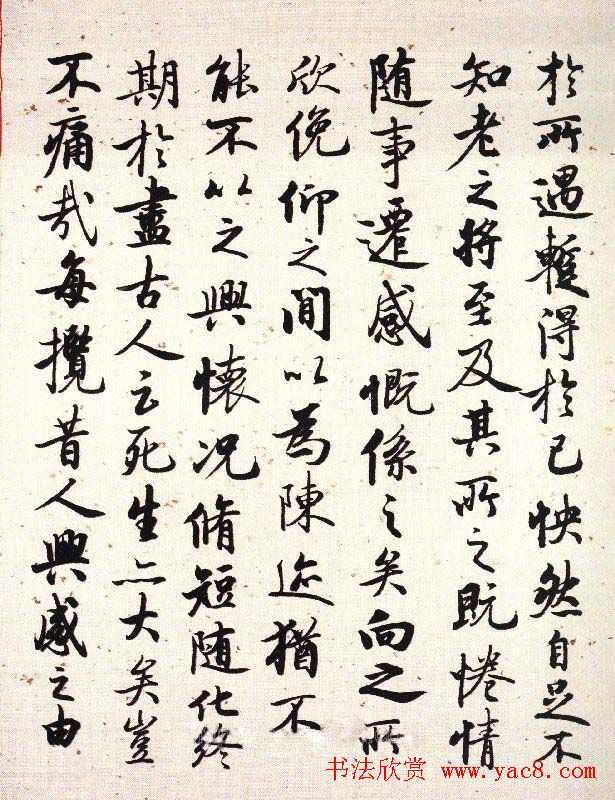 於所遇蹔得於己怏然自足不
知老之將至及其所之既惓情
隨事遷感慨係之矣向之所
欣俛仰之間以為陳迹猶不
能不以之興懷况脩短随化終
期於盡古人云死生亦大矣豈
不痛哉每攬昔人興感之由
书法欣赏 www.yac8.com